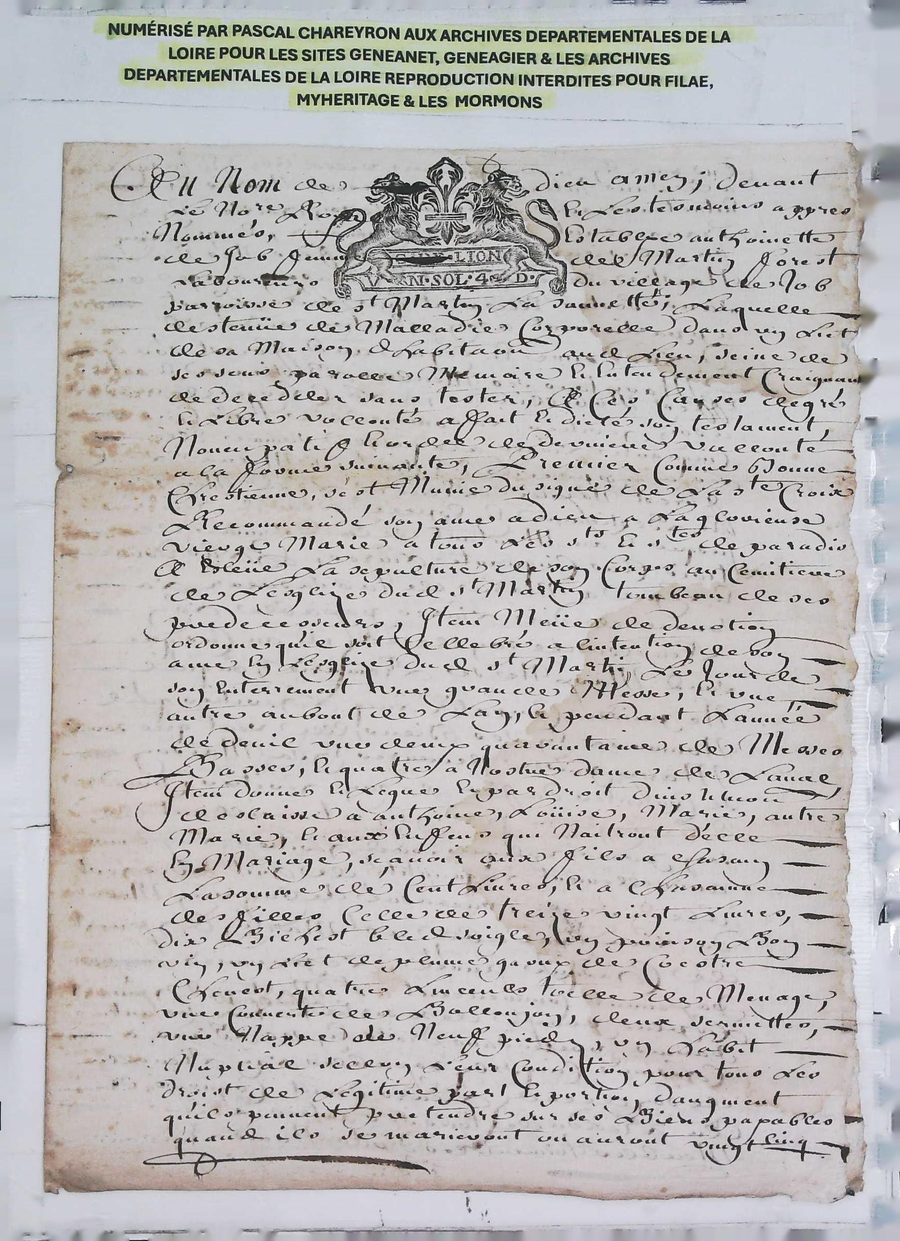 NUMÉRISÉ PAR PASCAL CHAREYRON AUX ARCHIVES DEPARTEMENTALES DE LA
LOIRE POUR LES SITES GENEANET, GENEAGIER & LES ARCHIVES
DEPARTEMENTALES DE LA LOIRE REPRODUCTION INTERDITES POUR FILAE,
MYHERITAGE & LES MORMONS
Au Nom de dieu amen, devant
Le No.re Royal & Les tesmoins appres
Nommés, Establye anthoinette
de Job femme de Martin forest
Laboureur du village de Job
LION
UN·SOL·4·D·
parroisse de st Martin La sauueté, Laquelle
destenüe de Malladie Corporelle dans un Lict
de sa Maison d'habitaon aud Lieu, seine de
ses sens parolle Memoire & Entendement Craignant
de deceder sans tester, A Ces Causes de gré
& Libre vollonté a fait & dicté son testament,
Noncupatif & ordre de derniere vollonté
a la forme suivante, Premier Comme bonne
Chrestienne, s'est Munie du signe de La ste Croix
Recommandé son ame a dieu a La glorieuse
vierge Marie a tous Les sts & stes de paradis
& Esleüe La sepulture de son Corps, au Cemitiere
de L'esglize dud st Martin tombeau de ses
predecesseurs, Item Meüe de devotion
ordonne qu'il soit Cellebré a l'intention de son
ame En L'esglize dud st Martin, Le Jour de
son Enterrement une grande Messe, & une
autre au bout de L'an, & pendant L'année
de deuil une demy quarantaine de Messes
Basses, & quatre a Nostre dame de Laual
Item donne & Legue & par droit d'institution
delaisse a anthoine, Loüise, Marie, autre
Marie, & aux Enffens qui Naitront d'elle
En Mariage, sçavoir aux fils a chascun
La somme de Cent Livres, & a chascunne
des filles Celle de treize vingt Livres,
dix Bichest bled soigle, un poinson Bon
vin, un Lict de plume garny de Coestre
Chevest, quatre Linceuls toille de Menage,
une Couuerte de Ballonjon, deux serviettes,
une Nappe de Neuff pieds, un habit
Nuptial sellon Leur Condition, pour tous Les
droist de Legitime part & portion, d'augment
qu'ils peuuent pretendre sur ses Biens payables
quand ils se marieront ou auront vingt cinq